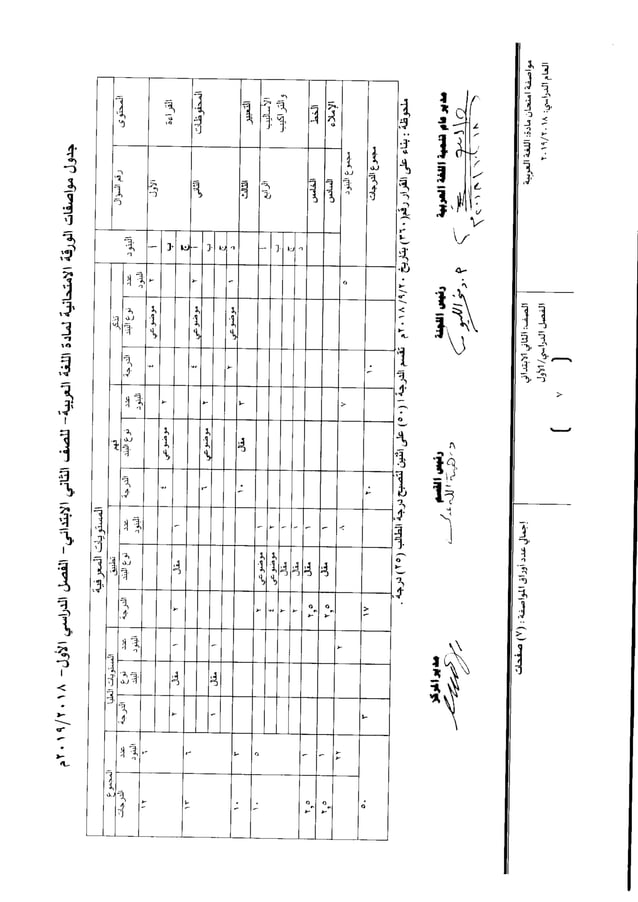 جدول مواصفات الورقة الامتحانية لمادة اللغة العربية - للصف الثاني الابتدائي - الفصل الدراسي الأول - ٢٠١٩/٢٠١٨م
المستويات المعرفية
المحتوى رقم السؤال البنود تذكر فهم تطبيق المستويات العليا المجموع
عدد البنود نوع البند الدرجة عدد البنود نوع البند الدرجة عدد البنود نوع البند الدرجة عدد البنود نوع البند الدرجة عدد البنود الدرجات
القراءة الأول أ ٢ موضوعي ٤ ٦ ١٢
ب ٢ موضوعي ٤
ج ١ مقال ٢ ١ مقال ٢
المحفوظات الثاني أ ٢ موضوعي ٤ ٦ ١٣
ب ٢ موضوعي ٦
ج ١ مقال ١
د ١ موضوعي ٢
التعبير الثالث ٣ مقال ١٠ ٣ ١٠
الأساليب والتراكيب الرابع أ ١ موضوعي ٢ ٥ ١٠
ب ٢ موضوعي ٤
ج ١ مقال ٢
د ١ مقال ٢
الخط الخامس ١ مقال ٢,٥ ١ ٢,٥
الإملاء السادس ١ مقال ٢,٥ ١ ٢,٥
مجموع البنود ٥ ٧ ٨ ٢ ٢٢
مجموع الدرجات ١٠ ٢٠ ١٧ ٣ ٥٠
ملحوظة : بناء على القرار رقم (٣٦٠) بتاريخ ٢٠١٨/٩/٢٠م تقسم الدرجة (٥٠) على اثنين لتصبح درجة الطالب (٢٥) درجة .
مدير عام تنمية اللغة العربية رئيس اللجنة رئيس القسم مدير المركز
مواصفة امتحان مادة: اللغة العربية الصف: الثاني الابتدائي إجمالي عدد أوراق المواصفة : (٧) صفحات
العام الدراسي: ٢٠١٩/٢٠١٨ الفصل الدراسي/الأول
( ٧ )